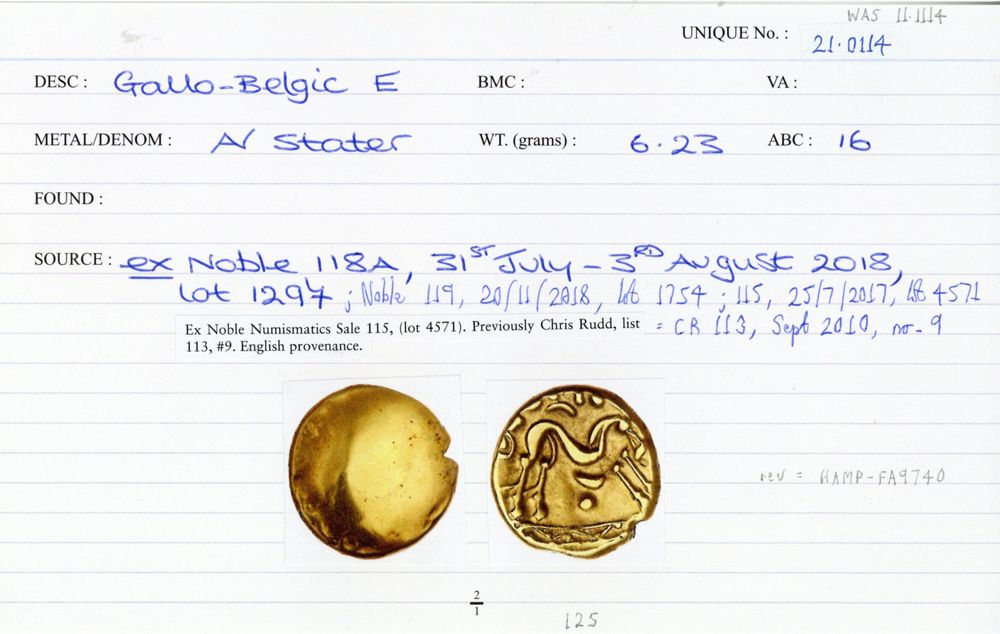 WAS 11.1114
UNIQUE No. : 21.0114
DESC : Gallo-Belgic E BMC : VA :
METAL/DENOM : A/ Stater WT. (grams) : 6.23 ABC : 16
FOUND :
SOURCE : ex Noble 118A, 31ST July - 3RD August 2018,
lot 1297 ; Noble 119, 20/11/2018, lot 1754 ; 115, 25/7/2017, lot 4571
Ex Noble Numismatics Sale 115, (lot 4571). Previously Chris Rudd, list = CR 113, Sept 2010, no. 9
113, #9. English provenance.
rev = HAMP-FA9740
2
1
125